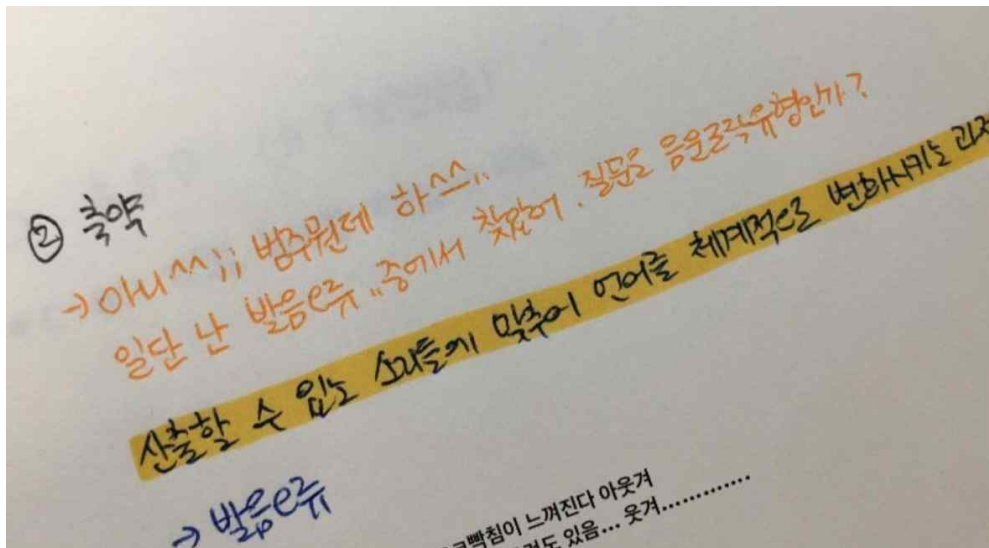 ② 축약
→ 아니^^;; 범주뭔데 하^^;;
일단 난 발음오류..중에서 찾았어. 질문은 음운규칙유형인가?
산출할 수 있는 소리들에 맞추어 언어를 체계적으로 변화시키는 과정
→ 발음오류
빡침이 느껴진다 아웃겨
있음... 웃겨.............